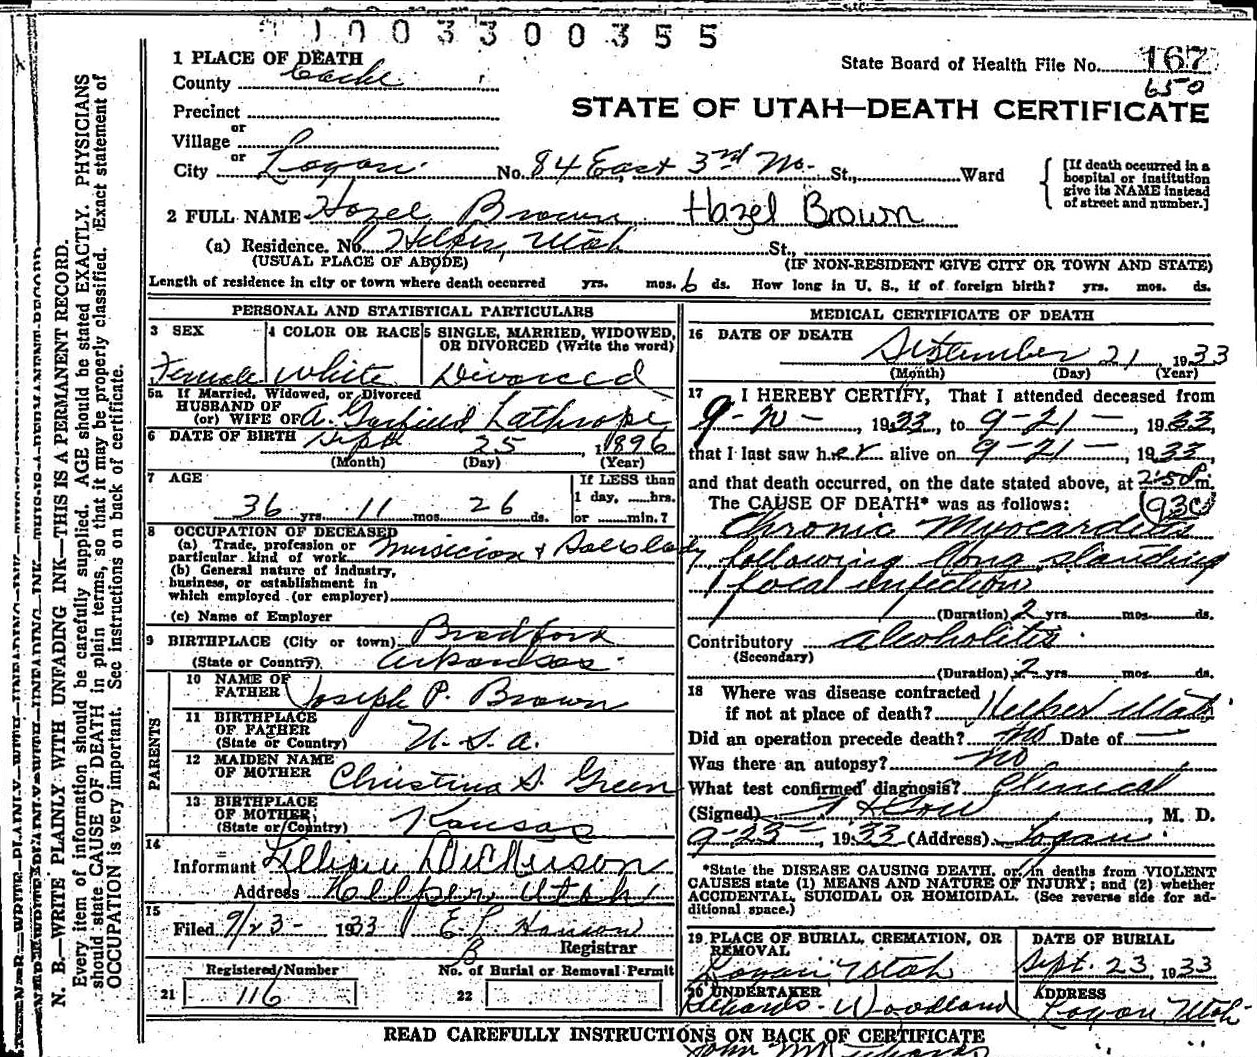 01003300355
1 PLACE OF DEATH
County Cache
State Board of Health File No. 167
650
Precinct
STATE OF UTAH—DEATH CERTIFICATE
or
Village
or
City Logan No. 84 East 3rd No. St., Ward
[If death occurred in a
hospital or institution
give its NAME instead
of street and number.]
2 FULL NAME Hazel Brown Hazel Brown
(a) Residence. No. Helper, Utah St.,
(USUAL PLACE OF ABODE) (IF NON-RESIDENT GIVE CITY OR TOWN AND STATE)
Length of residence in city or town where death occurred yrs. mos. 6 ds. How long in U. S., if of foreign birth? yrs. mos. ds.
PERSONAL AND STATISTICAL PARTICULARS
3 SEX 4 COLOR OR RACE 5 SINGLE, MARRIED, WIDOWED,
OR DIVORCED (Write the word)
Female White Divorced
5a If Married, Widowed, or Divorced
HUSBAND OF
(or) WIFE OF A. Garfield Lathrope
6 DATE OF BIRTH Sept 25, 1896
(Month) (Day) (Year)
7 AGE If LESS than
1 day, hrs.
36 yrs. 11 mos. 26 ds. or min.?
8 OCCUPATION OF DECEASED
(a) Trade, profession or
particular kind of work Musician &
(b) General nature of industry,
business, or establishment in
which employed (or employer)
(c) Name of Employer
9 BIRTHPLACE (City or town) Bradford
(State or Country) Arkansas
PARENTS
10 NAME OF
FATHER Joseph P. Brown
11 BIRTHPLACE
OF FATHER
(State or Country) U. S. A.
12 MAIDEN NAME
OF MOTHER Christina S. Green
13 BIRTHPLACE
OF MOTHER
(State or Country) Kansas
14
Informant Lillian Dickerson
Address Hellper, Utah
15
Filed 9/23- 1933 E. L. Hanson
Registrar
Registered Number No. of Burial or Removal Permit
21 116 22
MEDICAL CERTIFICATE OF DEATH
16 DATE OF DEATH
September 21 1933
(Month) (Day) (Year)
17 I HEREBY CERTIFY, That I attended deceased from
9-20-, 1933, to 9-21-, 1933,
that I last saw her alive on 9-21-, 1933,
and that death occurred, on the date stated above, at 2:50 P m.
The CAUSE OF DEATH* was as follows: 93c
Chronic Myocarditis
following long standing
focal infection
(Duration) 2 yrs. mos. ds.
Contributory
(Secondary)
(Duration) 2 yrs. mos. ds.
18 Where was disease contracted
if not at place of death? Helper Utah
Did an operation precede death? no Date of —
Was there an autopsy? no
What test confirmed diagnosis? Clinical
(Signed), M. D.
9-23-, 1933 (Address) Logan
*State the DISEASE CAUSING DEATH, or, in deaths from VIOLENT
CAUSES state (1) MEANS AND NATURE OF INJURY; and (2) whether
ACCIDENTAL, SUICIDAL OR HOMICIDAL. (See reverse side for ad-
ditional space.)
19 PLACE OF BURIAL, CREMATION, OR
REMOVAL
Logan Utah
DATE OF BURIAL
Sept. 23, 1933
20 UNDERTAKER
Woodland
ADDRESS
Logan Utah
READ CAREFULLY INSTRUCTIONS ON BACK OF CERTIFICATE
John
N. B.—WRITE PLAINLY WITH UNFADING INK—THIS IS A PERMANENT RECORD.
Every item of information should be carefully supplied. AGE should be stated EXACTLY. PHYSICIANS
should state CAUSE OF DEATH in plain terms, so that it may be properly classified. Exact statement of
OCCUPATION is very important. See instructions on back of certificate.